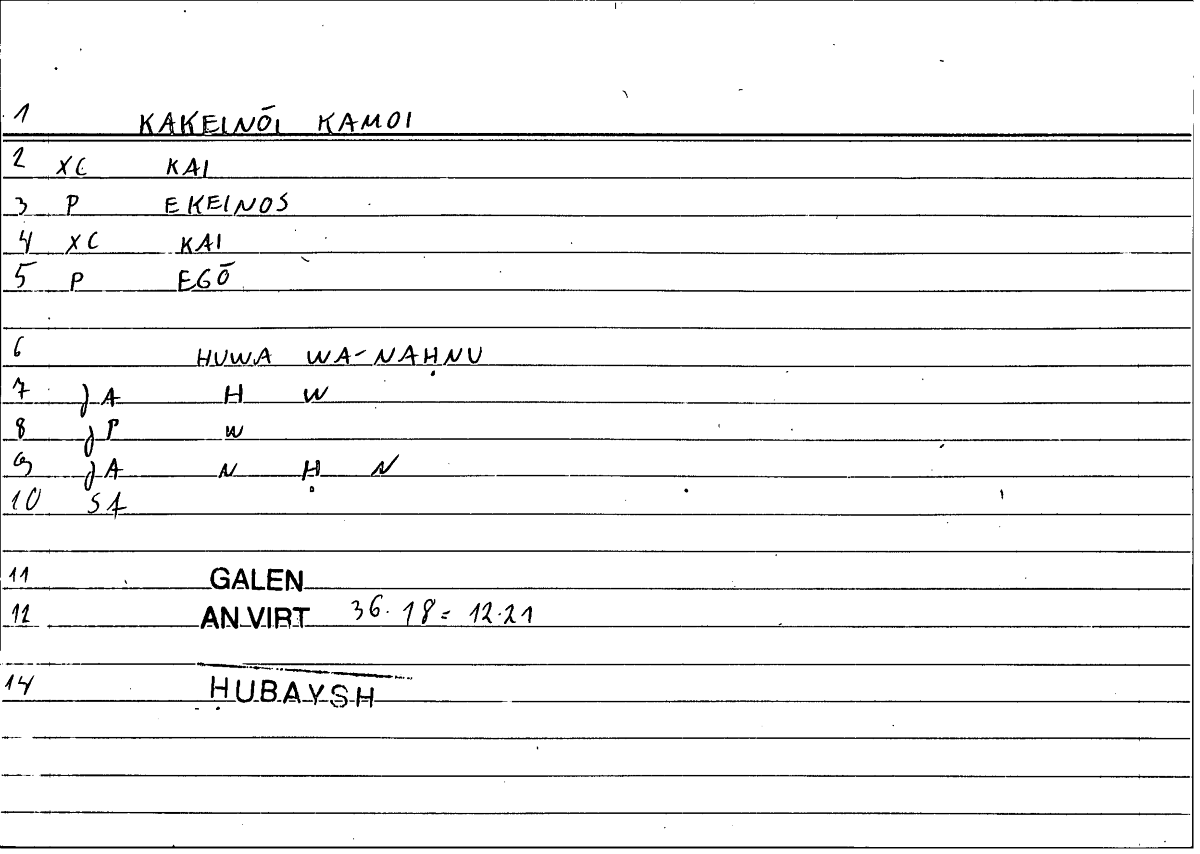 1 KAKEINŌI KAMOI
2 XC KAI
3 P EKEINOS
4 XC KAI
5 P EGŌ
6 HUWA WA-NAḤNU
7 jA H W
8 jP W
9 jA N Ḥ N
10 SA
11 GALEN
12 AN VIRT 36.18 = 12.21
14 ḤUBAYSH